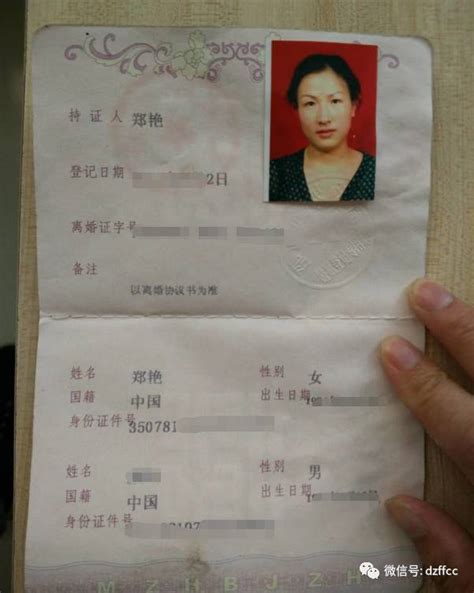 持证人 郑艳
登记日期 2日
离婚证字号
备注
以离婚协议书为准
姓名 郑艳 性别 女
国籍 中国 出生日期
身份证件号 350781
姓名 性别 男
国籍 中国 出生日期
身份证件号
M Z H B J Z H
微信号: dzffcc